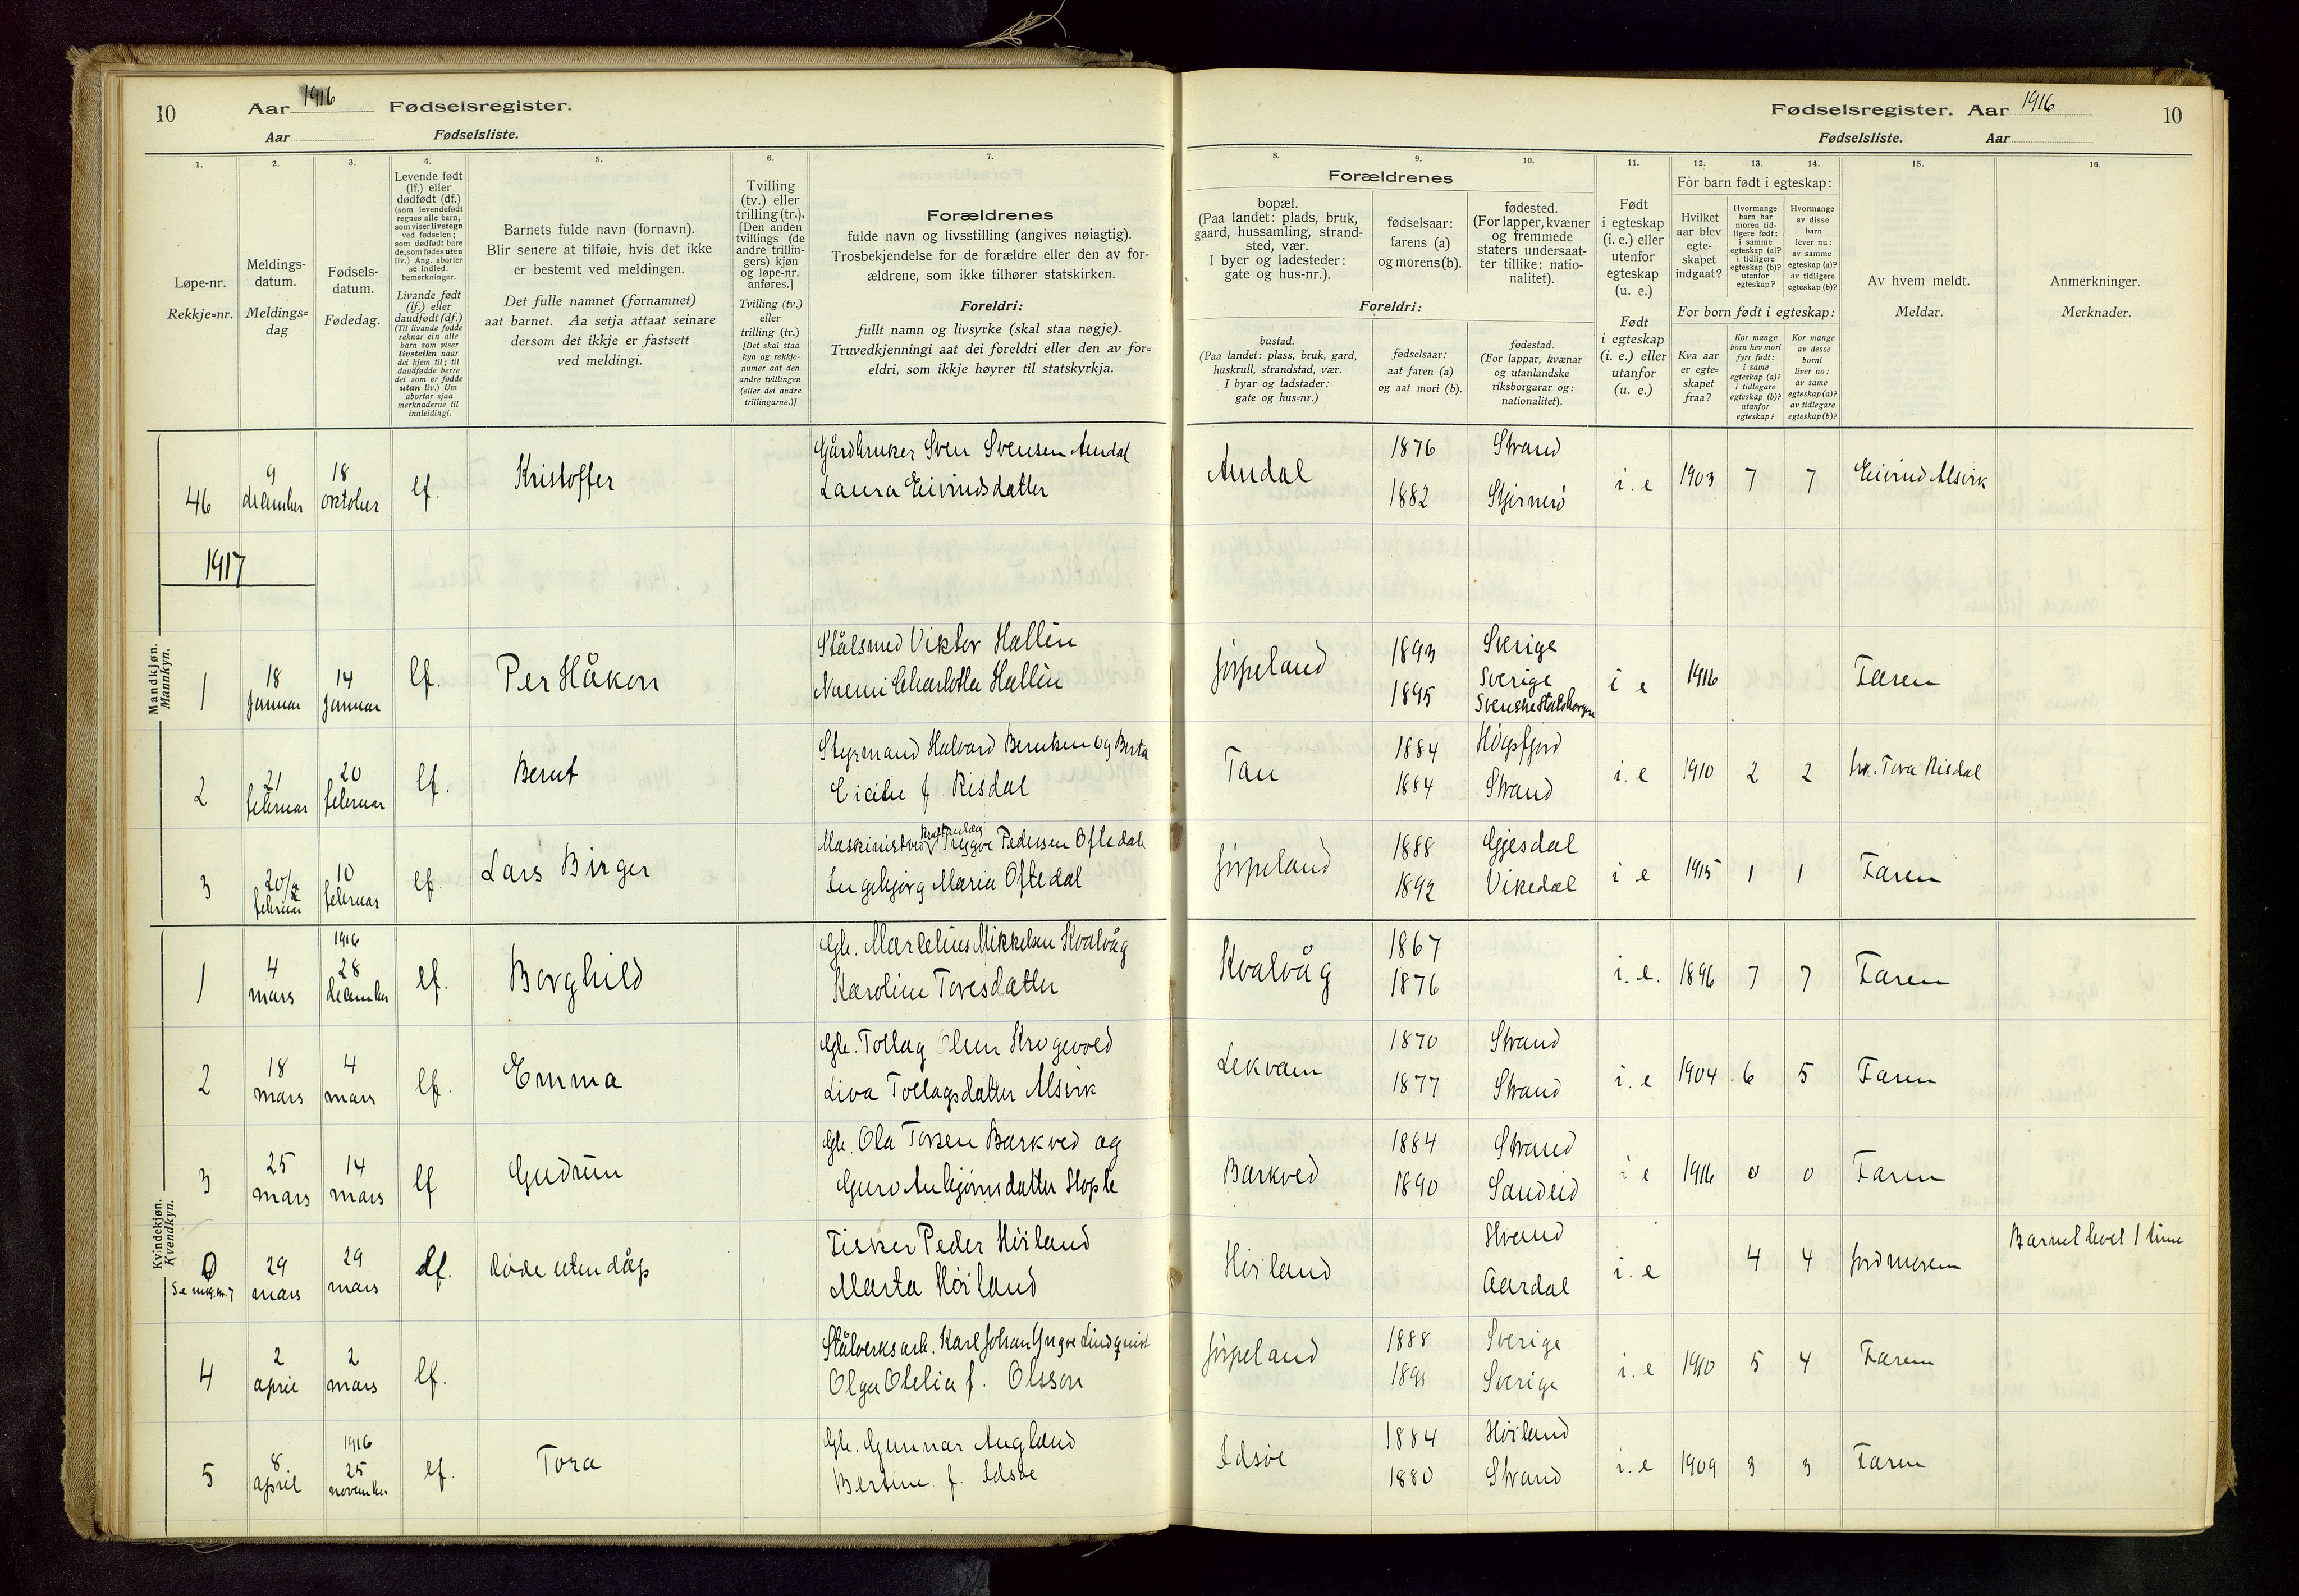 10 Aar 1916 Fødselsregister.
Aar Fødselsliste.
1.
2.
3.
4.
5.
6.
7.
Løpe-nr.
Rekkje=nr.
Meldings-
datum.
Meldings=
dag
Fødsels-
datum.
Fødedag.
Levende født
(lf.) eller
dødfødt (df.)
(som levendefødt
regnes alle barn,
som viser livstegn
ved fødselen;
som dødfødt bare
de, som fødes uten
liv.) Ang. aborter
se indled.
bemerkninger.
Livande født
(lf.) eller
daudfødt (df.)
(Til livande fødde
reknar ein alle
barn som viser
livsteikn naar
dei kjem til; til
daudfødde berre
dei som er fødde
utan liv.) Um
abortar sjaa
merknaderne til
innleidingi.
Barnets fulde navn (fornavn).
Blir senere at tilføie, hvis det ikke
er bestemt ved meldingen.
Det fulle namnet (fornamnet)
aat barnet. Aa setja attaat seinare
dersom det ikkje er fastsett
ved meldingi.
Tvilling
(tv.) eller
trilling (tr.).
[Den anden
tvillings (de
andre trillin-
gers) kjøn
og løpe-nr.
anføres.]
Tvilling (tv.)
eller
trilling (tr.)
[Det skal staa
kyn og rekkje-
numer aat den
andre tvillingen
(eller dei andre
trillingarne.)]
Forældrenes
fulde navn og livsstilling (angives nøiagtig).
Trosbekjendelse for de forældre eller den av for-
ældrene, som ikke tilhører statskirken.
Foreldri:
fullt namn og livsyrke (skal staa nøgje).
Truvedkjenningi aat dei foreldri eller den av for=
eldri, som ikkje høyrer til statskyrkja.
Fødselsregister. Aar 1916 10
Fødselsliste. Aar
8.
9.
10.
11.
12.
13.
14.
15.
16.
Forældrenes
bopæl.
(Paa landet: plads, bruk,
gaard, hussamling, strand-
sted, vær.
I byer og ladesteder:
gate og hus-nr.).
fødselsaar:
farens (a)
og morens (b).
fødested.
(For lapper, kvæner
og fremmede
staters undersaat-
ter tillike: natio-
nalitet).
Foreldri:
bustad.
(Paa landet: plass, bruk, gard,
huskrull, strandstad, vær.
I byar og ladstader:
gate og hus=nr.)
fødselsaar:
aat faren (a)
og aat mori (b).
fødestad.
(For lappar, kvænar
og utanlandske
riksborgarar og:
nationalitet).
Født
i egteskap
(i. e.) eller
utenfor
egteskap
(u. e.)
Født
i egteskap
(i. e.) eller
utanfor
(u. e.)
For barn født i egteskap:
Hvilket
aar blev
egte-
skapet
indgaat?
Hvormange
barn har
moren tid-
ligere født:
i samme
egteskap (a)?
i tidligere
egteskap (b)?
utenfor
egteskap?
Hvormange
av disse
barn
lever nu:
av samme
egteskap (a)?
av tidligere
egteskap (b)?
For born født i egteskap:
Kva aar
er egte=
skapet
fraa?
Kor mange
born hev mori
fyrr født:
i same
egteskap (a)?
i tidlegare
egteskap (b)?
utanfor
egteskap?
Kor mange
av desse
borni
liver no:
av same
egteskap (a)?
av tidlegare
egteskap (b)?
Av hvem meldt.
Meldar.
Anmerkninger.
Merknader.
Mandkjøn.
Mannkyn.
46 9 december 18 oktober lf. Kristoffer Gårdbruker Sven Svensen Amdal
Laura Eivindsdatter
Amdal 1876 Strand i. e 1903 7 7 Eivind Alsvik
1882 Stjernerö
1917
1 18 Januar 14 Januar lf. Per Håkon Stålsmed Viktor Hallin
Naemi Charlotta Hallin
Jörpeland 1893 Sverige i e 1916 Faren
1895 Sverige
Svenske Statsborgere
2 21 februar 20 februar lf. Bernt Styrmand Halvard Berntsen og Berta
Cicilie f. Risdal
Tau 1884 Högsfjord i. e 1910 2 2 hr. Tora Risdal
1884 Strand
3 20/2 februar 10 februar lf. Lars Birger Maskinist ved Kraftanlæg Trygve Pedersen Oftedal
Ingebjørg Maria Oftedal
Jörpeland 1888 Gjesdal i e 1915 1 1 Faren
1892 Vikedal
Kvindekjøn.
Kvendkyn.
1 4 mars 1916 28 december lf. Borghild Gb. Marselius Mikkelsen Kvalvåg
Karoline Toresdatter
Kvalvåg 1867 i. e. 1896 7 7 Faren
1876
2 18 mars 4 mars lf. Emma Gb. Tollag Olsen Krogevold
Liva Tollagsdatter Alsvik
Lekvam 1870 Strand i. e 1904 6 5 Faren
1877 Strand
3 25 mars 14 mars lf Gudrun Gb. Ola Torsen Barkved og
Guro Anbjörnsdatter Stople
Barkved 1884 Strand i e 1916 0 0 Faren
1890 Sandeid
0 29 mars 29 mars lf. döde uten dåp Fisker Peder Höiland
Marta Höiland
Höiland Strand i. e 4 4 Jordmoren Barnet levet 1 time
Aardal
4 2 april 2 mars lf. Stålverksarb. Karl Johan Yngve Lindquist
Olga Otelia f. Olsson
Jörpeland 1888 Sverige i. e 1910 5 4 Faren
1891 Sverige
5 8 april 1916 25 november lf. Tora Gb. Gunnar Augland
Bertine f. Idsöe
Idsöe 1884 Höiland i. e 1909 3 3 Faren
1880 Strand